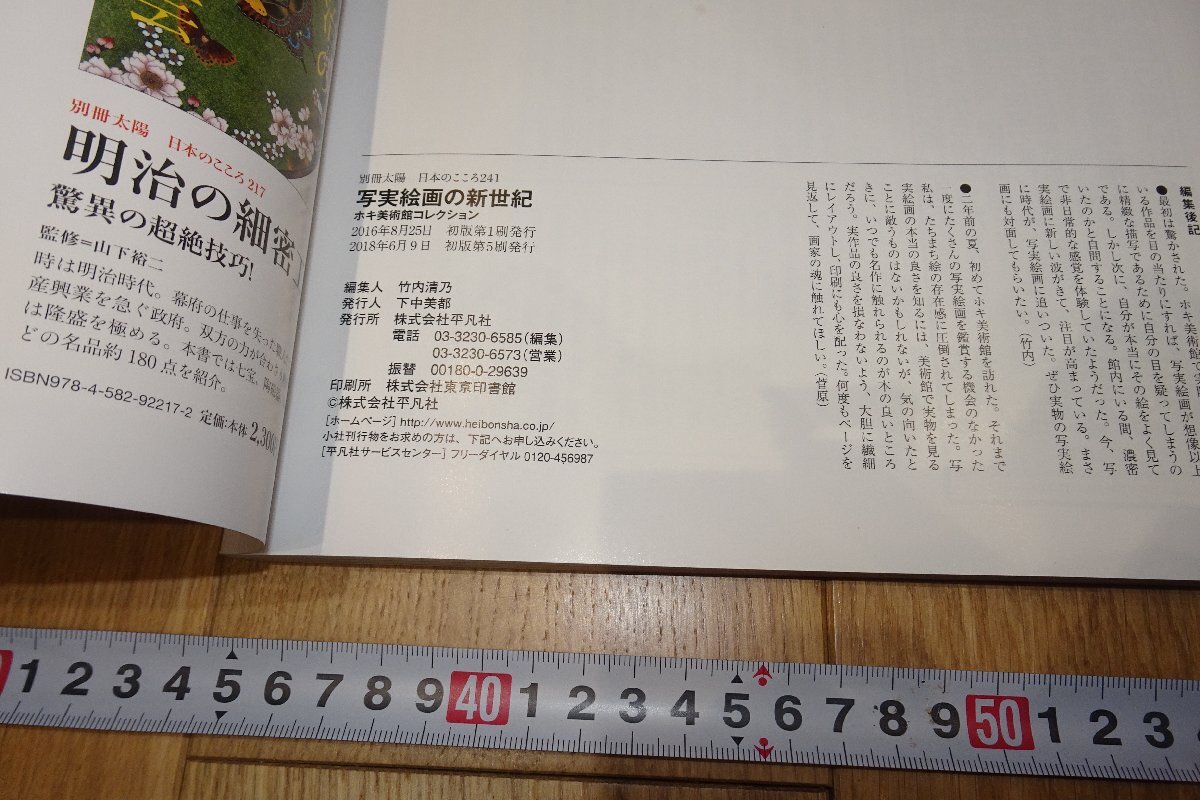 別冊太陽 日本のこころ217
明治の細密
驚異の超絶技巧!
監修=山下裕二
時は明治時代。幕府の仕事を失った
産興業を急ぐ政府。双方の力が合わさ
は隆盛を極める。本書では七宝、
どの名品約180点を紹介。
ISBN978-4-582-92217-2 定価:本体2,300
別冊太陽 日本のこころ241
写実絵画の新世紀
ホキ美術館コレクション
2016年8月25日 初版第1刷発行
2018年6月9日 初版第5刷発行
編集人 竹内清乃
発行人 下中美都
発行所 株式会社平凡社
電話 03-3230-6585(編集)
03-3230-6573(営業)
振替 00180-0-29639
印刷所 株式会社東京印書館
©株式会社平凡社
[ホームページ] http://www.heibonsha.co.jp/
小社刊行物をお求めの方は、下記へお申し込みください。
[平凡社サービスセンター] フリーダイヤル 0120-456987
編集後記
●最初は驚かされた。ホキ美術館で
いる作品を目の当たりにすれば、写実絵画が想像以上
に精緻な描写であるために自分の目を疑ってしまうの
である。しかし次に、自分が本当にその絵をよく見て
いたのかと自問することになる。館内にいる間、濃密
で非日常的な感覚を体験していたようだった。今、写
実絵画に新しい波がきて、注目が高まっている。まさ
に時代が、写実絵画に追いついた。ぜひ実物の写実絵
画にも対面してもらいたい。(竹内)
●二年前の夏、初めてホキ美術館を訪れた。それまで
一度にたくさんの写実絵画を鑑賞する機会のなかった
私は、たちまち絵の存在感に圧倒されてしまった。写
実絵画の本当の良さを知るには、美術館で実物を見る
ことに敵うものはないかもしれないが、気の向いたと
きに、いつでも名作に触れられるのが本の良いところ
だろう。実作品の良さを損なわないよう、大胆に繊細
にレイアウトし、印刷にも心を配った。何度もページを
見返して、画家の魂に触れてほしい。(菅原)
1 2 3 4 5 6 7 8 9 40 1 2 3 4 5 6 7 8 9 50 1 2 3